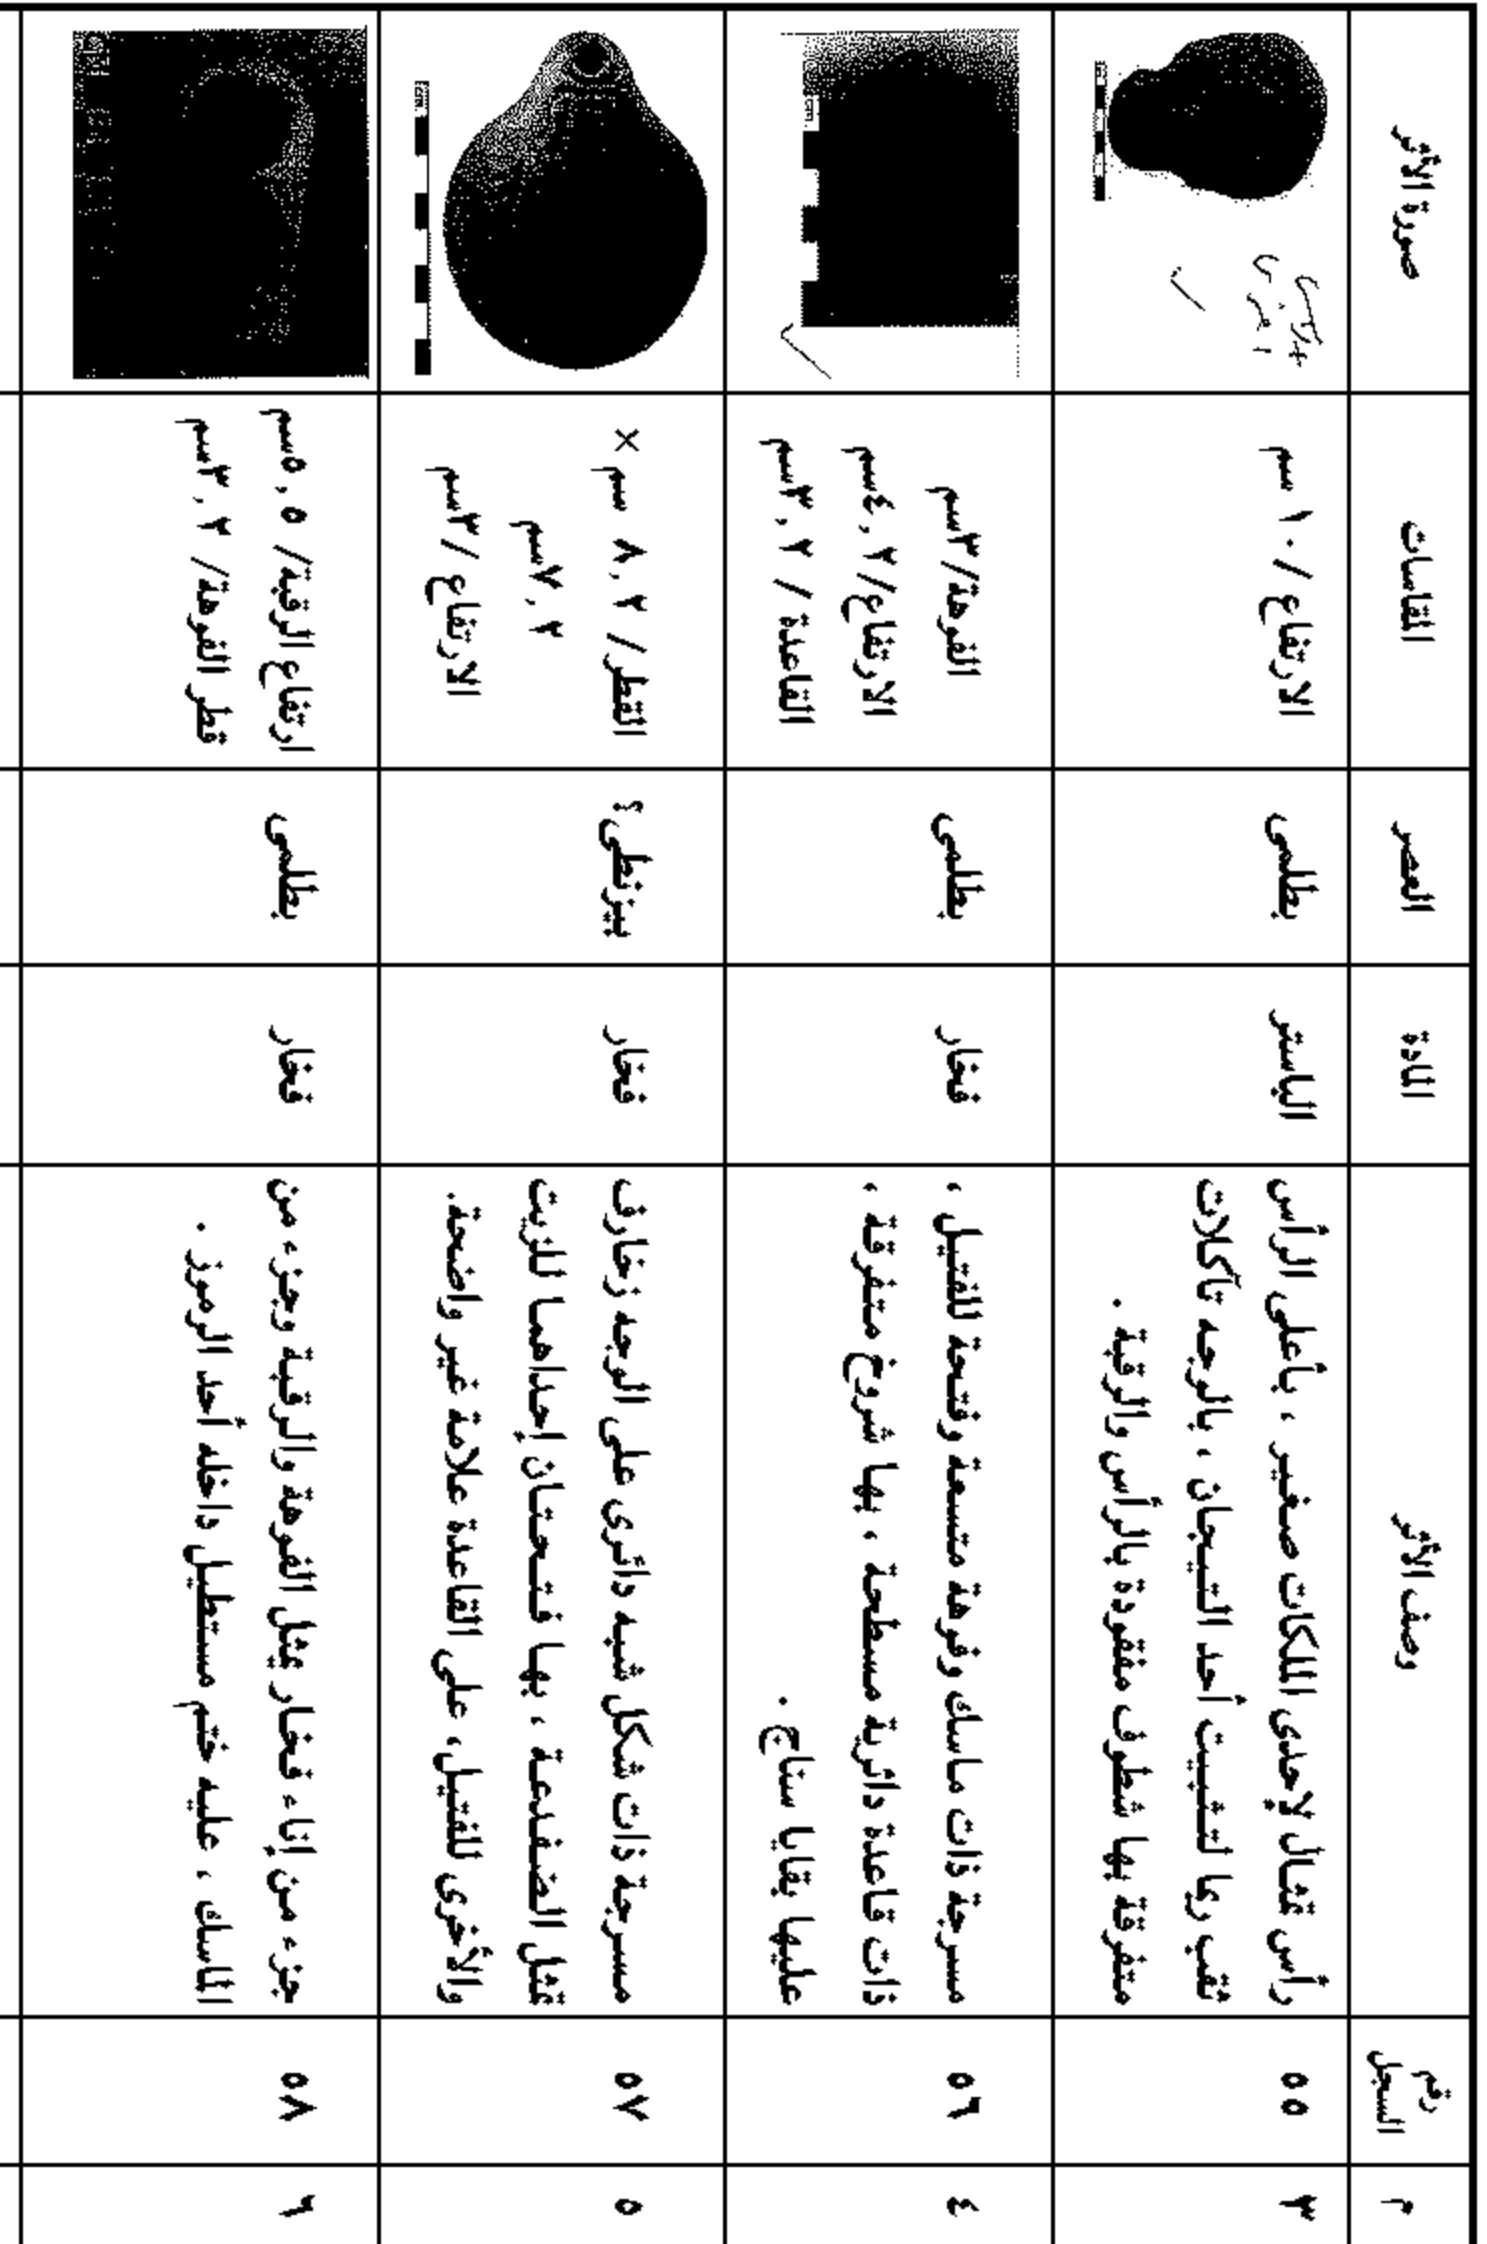 م
رقم
السجل
وصف الأثر
المادة
العصر
المقاسات
صورة الأثر
٣
٥٥
رأس تمثال لإحدى الملكات صغير ، بأعلى الرأس
ثقب ربما لتثبيت أحد التيجان ، بالوجه تآكلات
متفرقة بها شطوف مفقودة بالرأس والرقبة .
الباستر
بطلمى
الارتفاع / ١٠ سم
٤
٥٦
مسرجة ذات ماسك وفوهة متسعة وفتحة للفتيل ،
ذات قاعدة دائرية مسطحة ، بها شروخ متفرقة ،
عليها بقايا سناج .
فخار
بطلمى
الفوهة/ ٣سم
الارتفاع/ ٤,٢سم
القاعدة / ٣,٢سم
٥
٥٧
مسرجة ذات شكل شبه دائرى على الوجه زخارف
تمثل الضفدعة ، بها فتحتان إحداهما للزيت
والأخرى للفتيل، على القاعدة علامة غير واضحة.
فخار
بيزنطى؟
القطر/ ٨,٢ سم ×
٧,٢سم
الارتفاع /٣سم
٦
٥٨
جزء من إناء فخار يمثل الفوهة والرقبة وجزء من
الماسك ، عليه ختم مستطيل داخله أحد الرموز .
فخار
بطلمى
ارتفاع الرقبة/ ٥,٥سم
قطر الفوهة/ ٣,٢سم